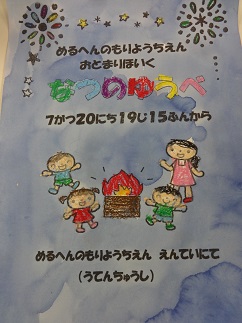 めるへんのもりようちえん
おとまりほいく
なつのゆうべ
7がつ20にち19じ15ふんから
めるへんのもりようちえん えんていにて
(うてんちゅうし)